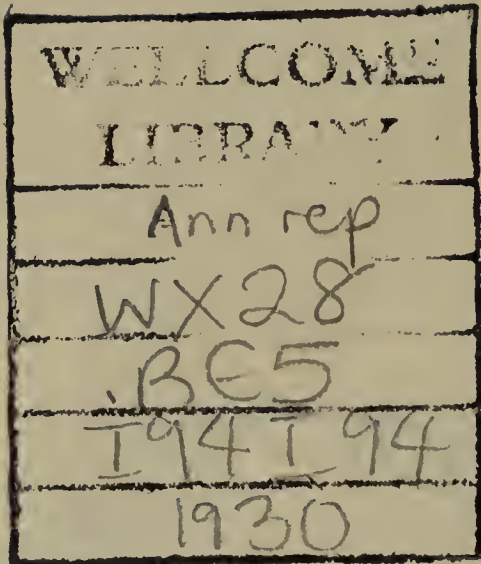 WELLCOME
LIBRARY
Ann rep
WX28
.BE5
I94 I94
1930